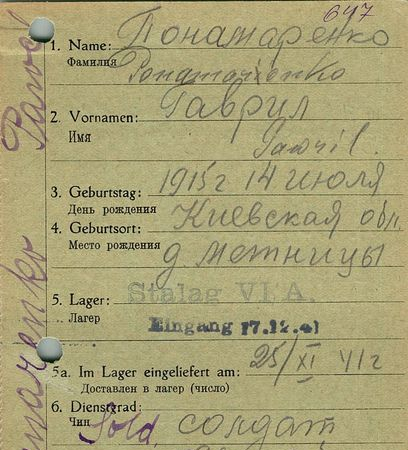 647
1. Name: Понамаренко
Фамилия Ponamarenko
2. Vornamen: Гаврил
Имя Gawril.
3. Geburtstag: 1915 г 14 июля
День рождения
4. Geburtsort: Киевская обл.
Место рождения
д. Метницы
5. Lager: Stalag VI A.
Лагерь
Eingang 17.12.41
5a. Im Lager eingeliefert am: 25/XI 41 г
Доставлен в лагерь (число)
6. Dienstgrad:
Чин Sold, солдат